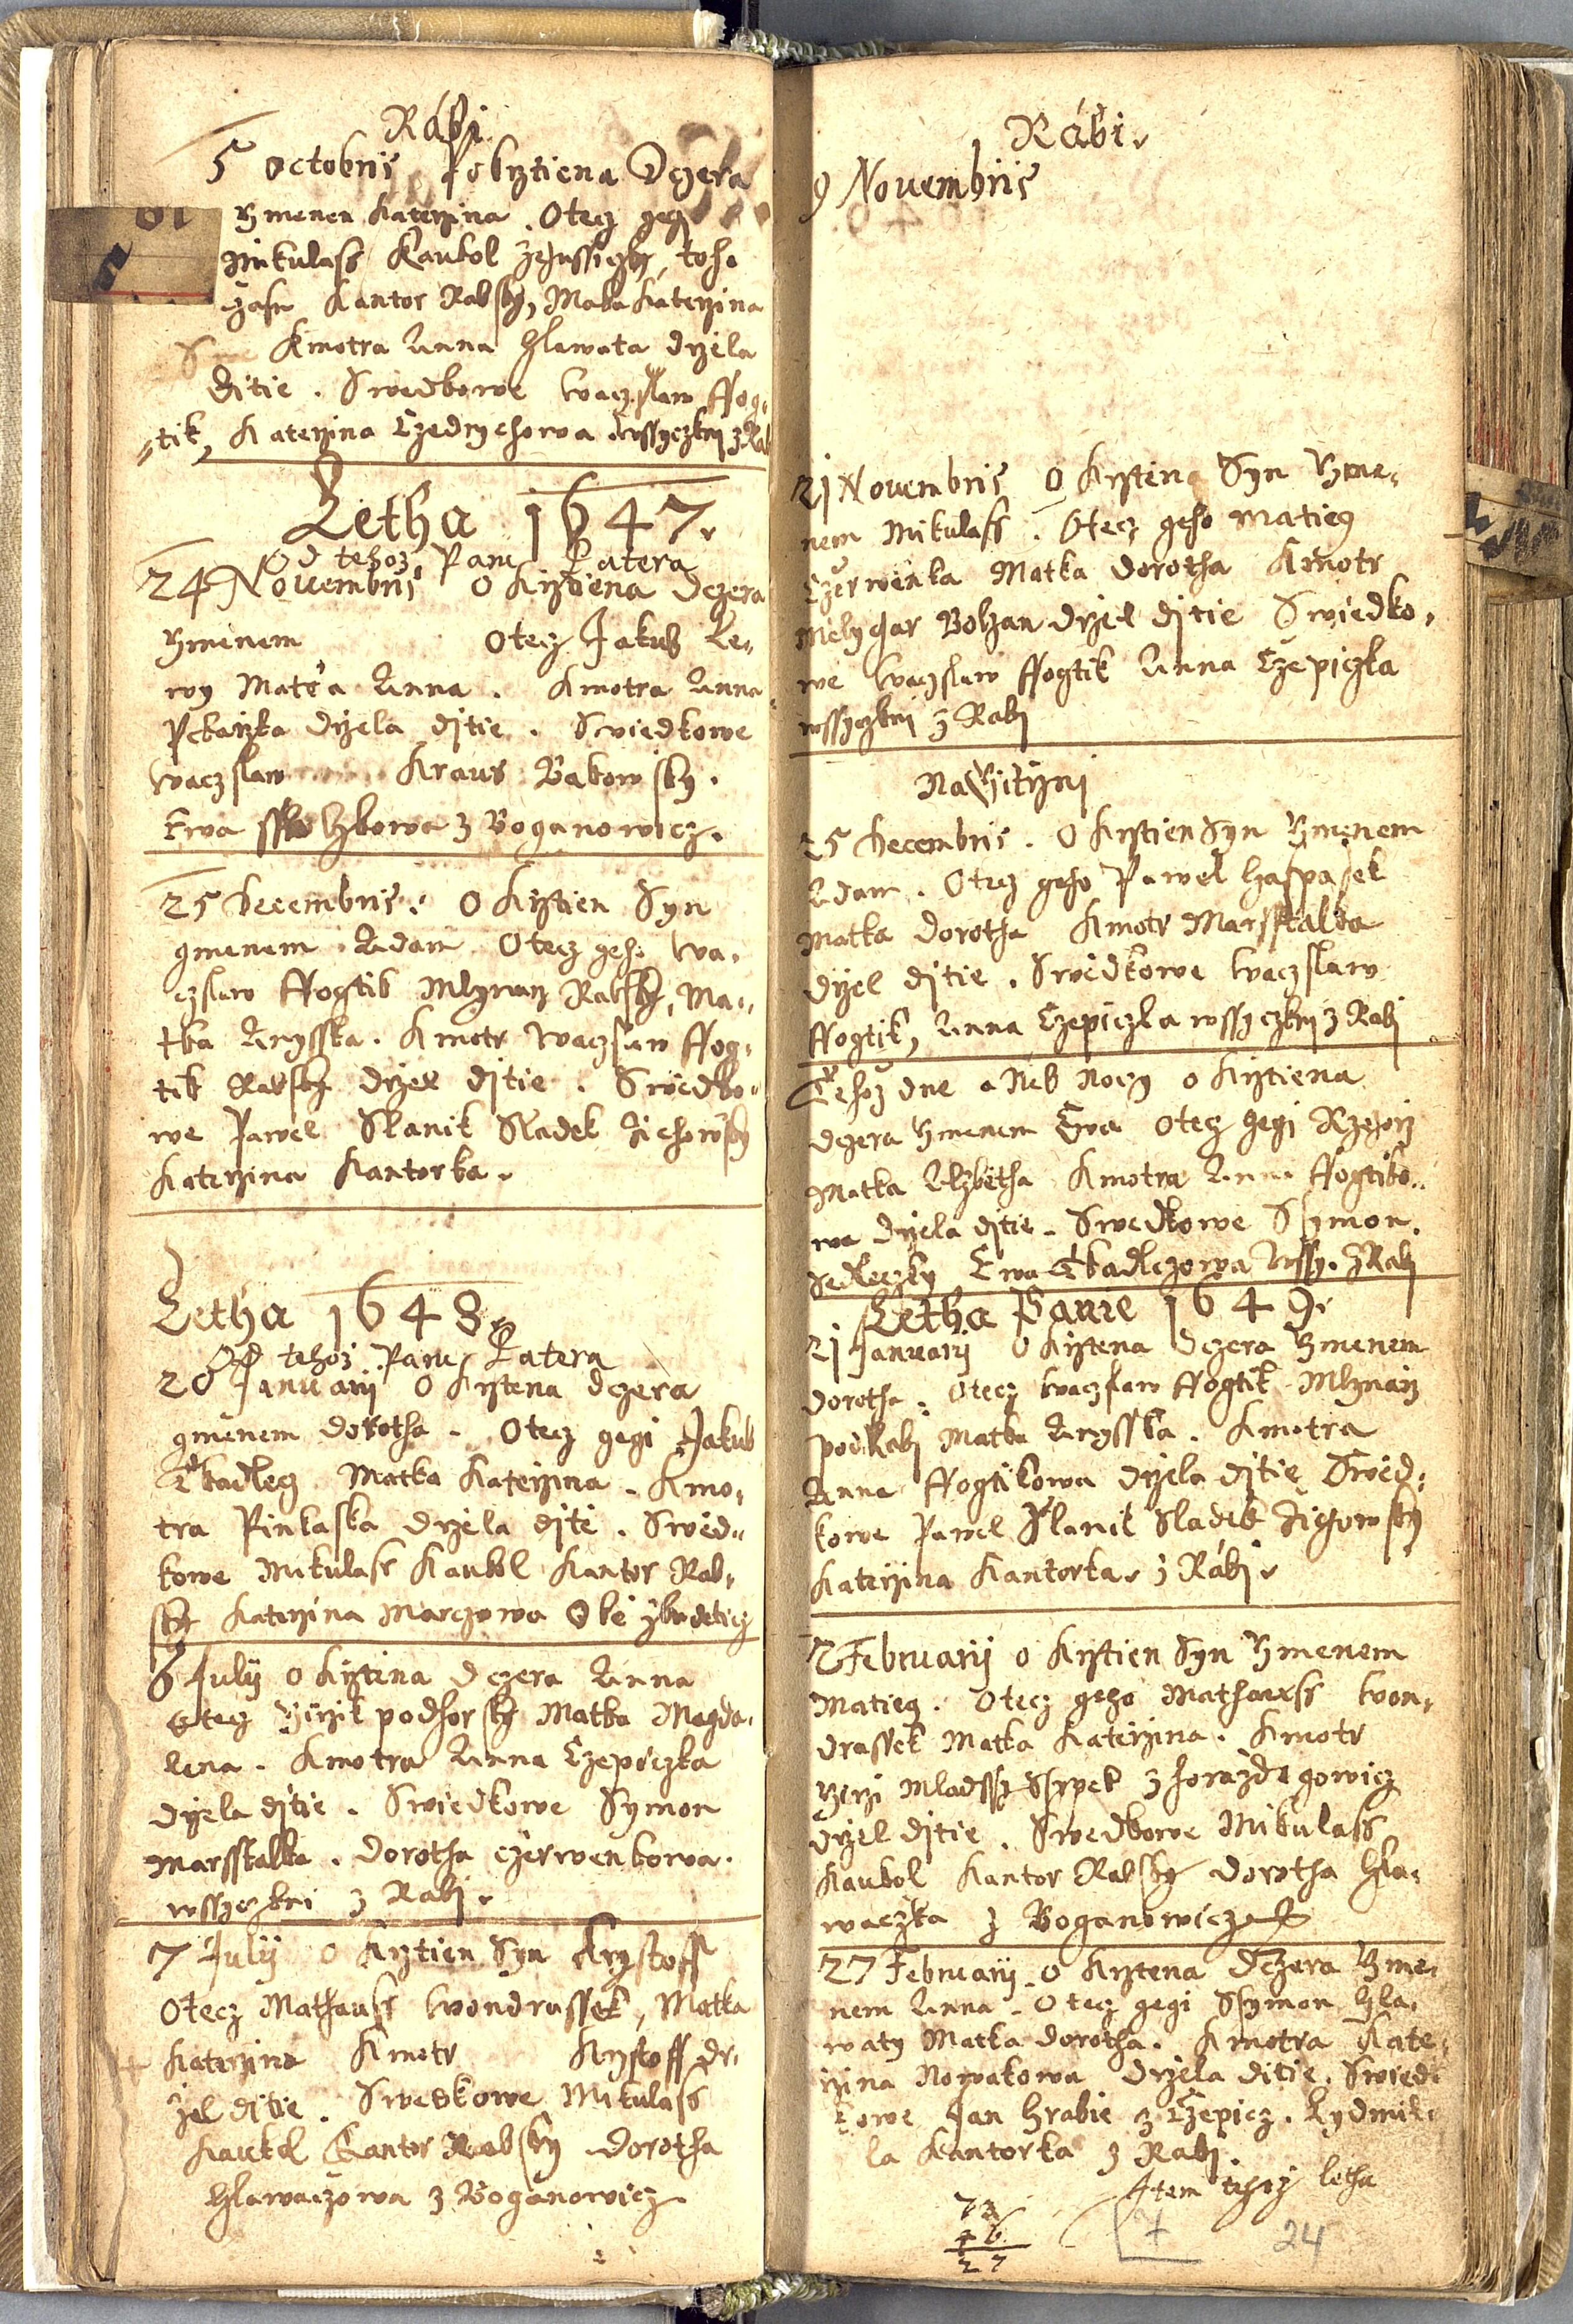 Rabi
5 Octobris Pokrztiena Dczera
Ymenen Katerzina. Otecz gegi
Mikulass Kaukol
Kantor Rabsky, Matka Katerzina
Kmotra Anna Hlawata drzela
Ditie. Swedkowe Waczslaw Fog-
tik, Katerzina Czedrychowa wssyczkni z Rab
Letha 1647.
Od tehoz Pane Patera
24 Novembris O Krztiena Dczera
Ymenem Otecz Jakub Le-
wy Matka Anna. Kmotra Anna
Pekarzka drzela djtie. Swiedkowe
Waczslaw Kraus Bakowsky.
Ewa z Boganowicz.
25 Decembris. O Krztien Syn
gmenem Adam Otecz geho Wa-
czslaw Fogtik Mlynarz Rabsky, Ma-
tka Anysska. Kmotr Waczslaw Fog-
tik Rabsky drzel djtie. Swiedko-
we Pawel Slanik Sladek Zichowsky
Katerzina Kantorka.
Letha 1648.
Od tehoz Pane Patera
20 Januarij O Krztena dczera
gmenem Dorotha. Otecz gegi Jakub
Tkadlecz Matka Katerzina. Kmo-
tra Pinkaska drzela djte. Swed-
kowe Mikulass Kaukol Kantor Rab-
sky Katerzina Marczowa Obe z Budeticz
6 Julij O Krztina Dczera Anna
Otecz Girzik podhorsky Matka Magda-
lena. Kmotra Anna Czepiczka
drzela djtie. Swiedkowe Symon
Marsstalka. Dorotha czerwenkowa.
wssyczkni z Rabj.
7 Julij O Krztien Syn Krystoff
Otecz Mathauss Wondrassek, Matka
Katerzina Kmotr Krystoff dr-
zel djtie. Swedkowe Mikulass
Kaukol Kantor Rabsky Dorotha
Hlawaczowa z Boganowicz.
Rabi.
9 Novembris
21 Novembris O Krzten Syn Yme-
nem Mikulass. Otecz geho Matieg
Czerwenka Matka Dorotha Kmotr
Melychar Bolzan drzel djtie Swiedko-
we Waczslaw Fogtik Anna Czepiczka
wssyczkni z Rabj
Na
25 Decembris. O Krztien Syn Ymenem
Adam. Otecz geho Pawel Haspasek
Matka Dorotha Kmotr Marsstalka
drzel djtie. Swiedkowe Waczslaw
Fogtik, Anna Czepiczka wssyczkni z Rabj
Tehoz dne a Neb Noczy O Krztiena
dczera Ymenem Ewa Otecz gegi Rzehorz
Matka Alzbietha Kmotra Anna Fogtiko-
wa drzela djtie. Swedkowe Symon
Sedleczky Ewa Tkadlczowa Wssy. z Rabj
Letha Panie 1649.
21 Januarij O Krztena Dczera Ymenem
Dorotha. Otecz Waczslaw Fogtik Mlynarz
pod Rabj Matka Anysska. Kmotra
Anna Fogtikowa drzela djtie Swied-
kowe Pawel Slanik Sladek Zichowsky
Katerzina Kantorka z Rabj.
2 Februarij O Krztien Syn Ymenem
Matieg. Otecz geho Mathauss Won-
drassek Matka Katerzina. Kmotr
Girzi Mladssy Sypek z Horazdegowicz
drzel djtie. Swedkowe Mikulass
Kaukol Kantor Rabsky Dorotha Hla-
waczka z Boganowicz
27 Februarij O Krztena Dczera Yme-
nem Anna. Otecz gegi Symon Hla-
waty Matka Dorotha. Kmotra Kate-
rzina Nowakowa drzela ditie. Swied-
kowe Jan Hrabie z Czepicz. Lydmil-
la Kantorka z Rabj.
Item tehoz letha
73
46
27
7
24